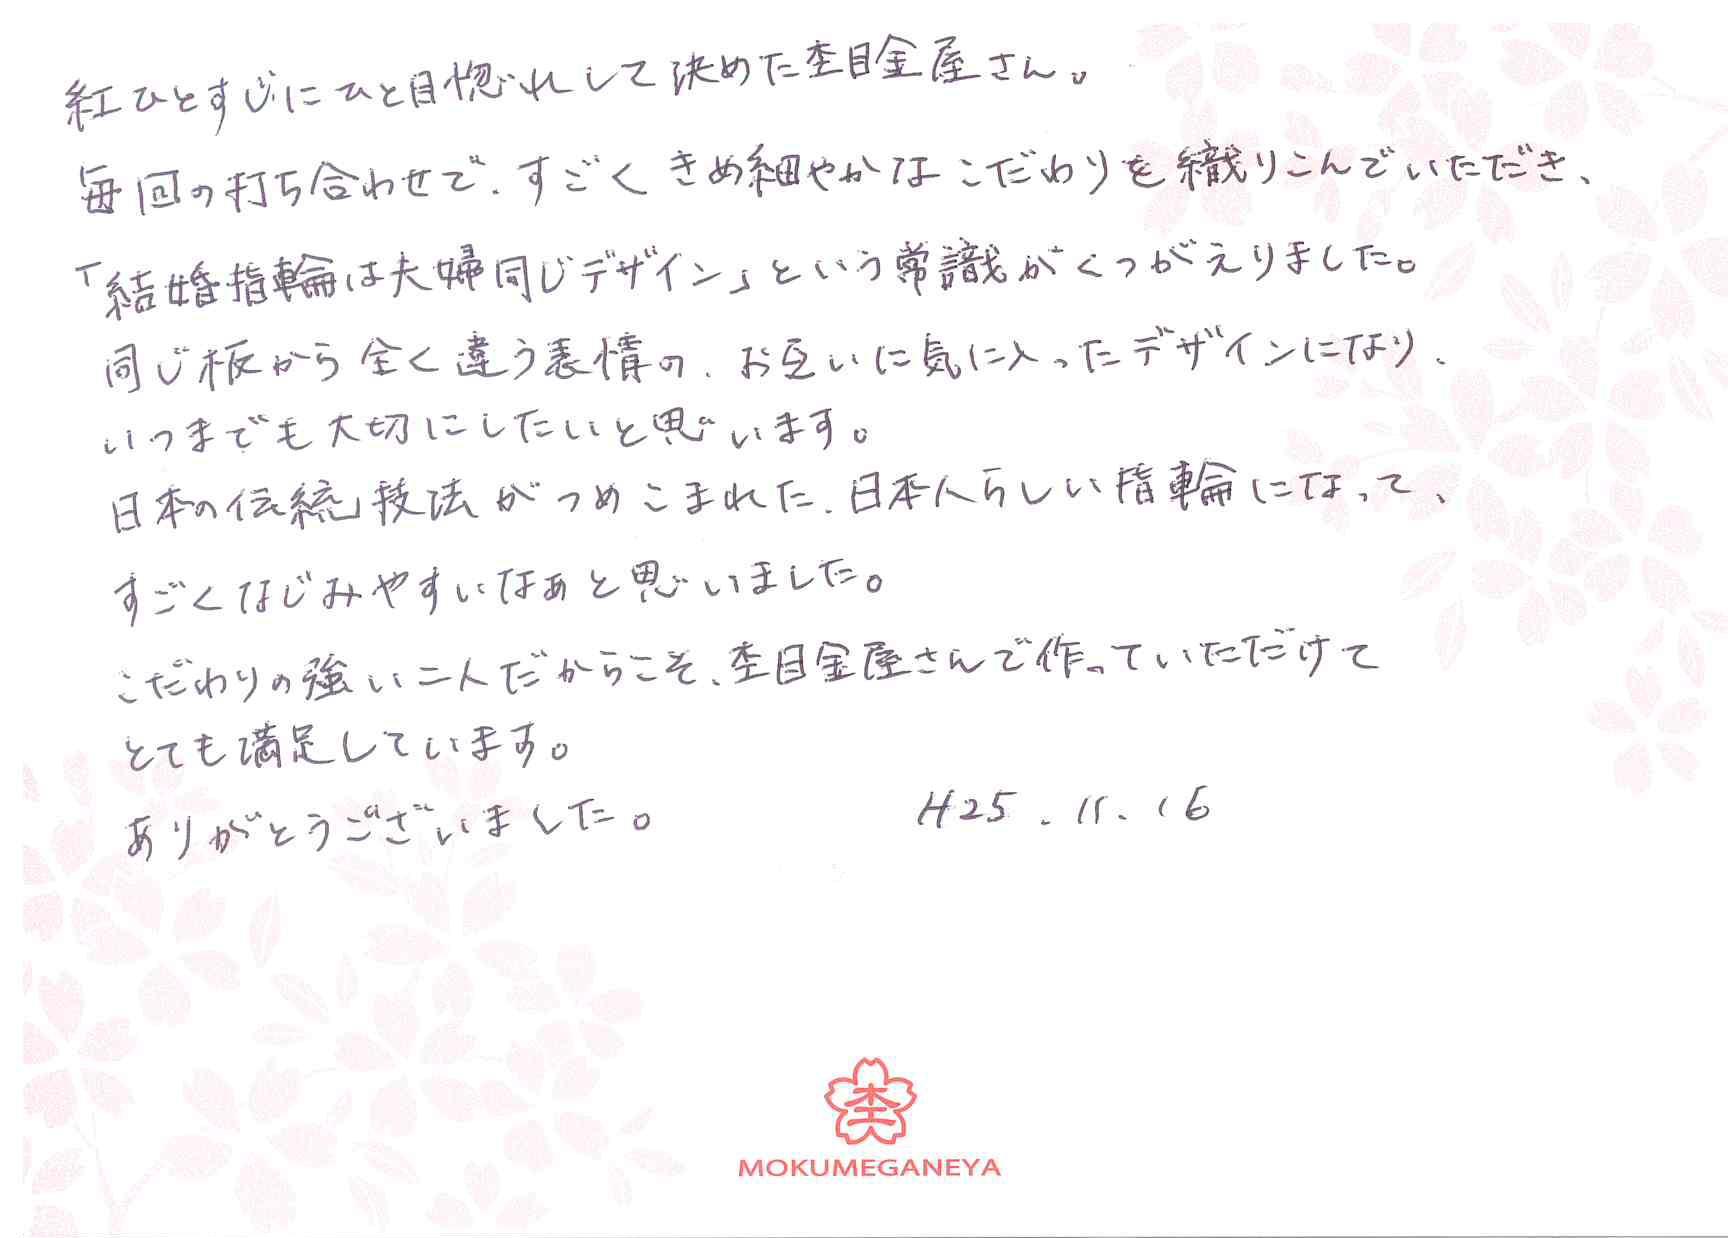 紅ひとすじにひと目惚れして決めた杢目金屋さん。
毎回の打ち合わせで、すごくきめ細やかなこだわりを織りこんでいただき、
「結婚指輪は夫婦同じデザイン」という常識がくつがえりました。
同じ板から全く違う表情の、お互いに気に入ったデザインになり、
いつまでも大切にしたいと思います。
日本の伝統技法がつめこまれた、日本人らしい指輪になって、
すごくなじみやすいなぁと思いました。
こだわりの強い二人だからこそ、杢目金屋さんで作っていただけて
とても満足しています。
ありがとうございました。
H25.11.16
杢
MOKUMEGANEYA